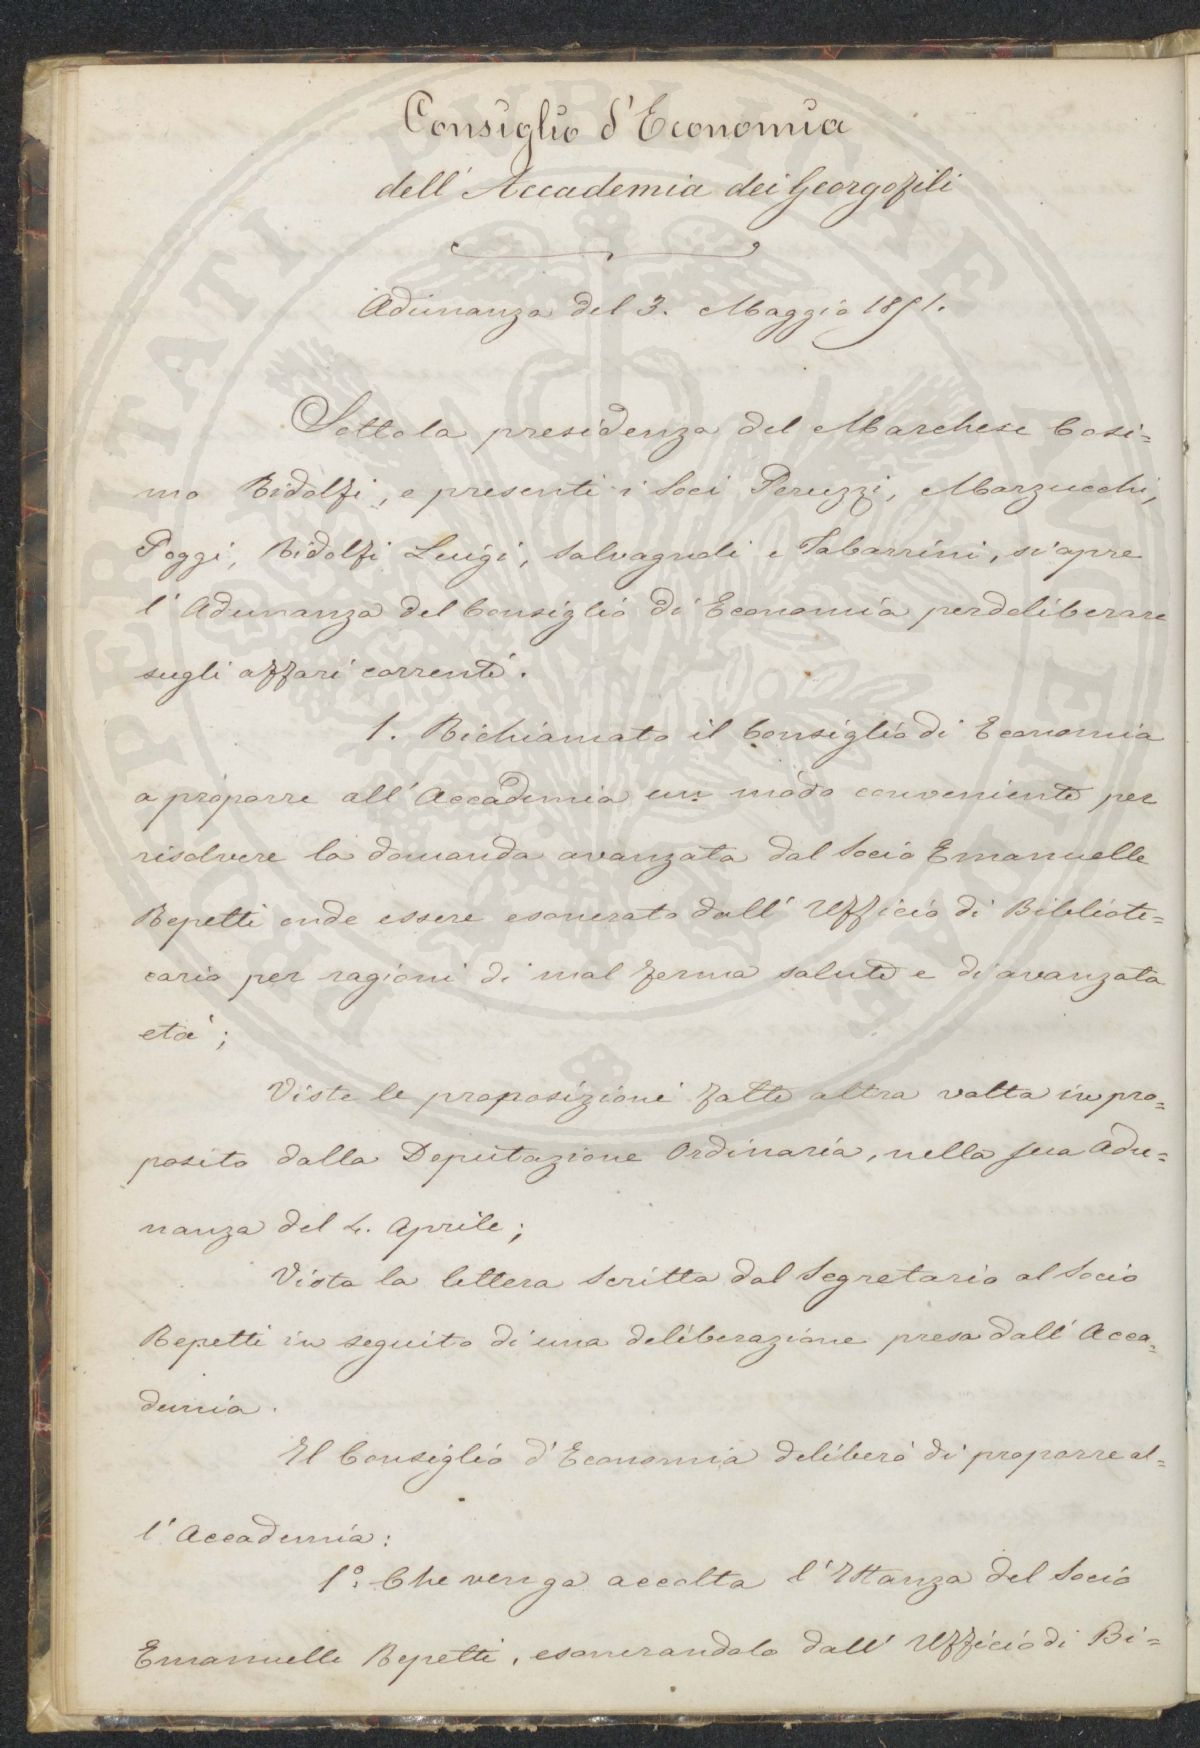 Consiglio d'Economia
dell'Accademia dei Georgofili
Adunanza del 3. Maggio 1851.
Sotto la presidenza del Marchese Cosi=
mo Ridolfi, e presenti i Soci Peruzzi, Marzucchi,
Poggi, Ridolfi Luigi, Salvagnoli e Tabarrini, si apre
l'Adunanza del Consiglio di Economia per deliberare
sugli affari correnti.
1. Richiamato il Consiglio di Economia
a proporre all'Accademia un modo conveniente per
risolvere la domanda avanzata dal Socio Emanuelle
Repetti onde essere esonerato dall'Ufficio di Bibliote=
cario per ragioni di mal ferma salute e di avanzata
età;
Viste le proposizioni fatte altra volta in pro=
posito dalla Deputazione Ordinaria, nella sua Adu=
nanza del 4. Aprile;
Vista la lettera scritta dal Segretario al Socio
Repetti in seguito di una deliberazione presa dall'Acca=
demia.
Il Consiglio d'Economia deliberò di proporre al=
l'Accademia:
1.º Che venga accolta l'Istanza del Socio
Emanuelle Repetti, esonerandolo dall'Ufficio di Bi=
PROSPERITATI PUBLICAE AUGENDAE